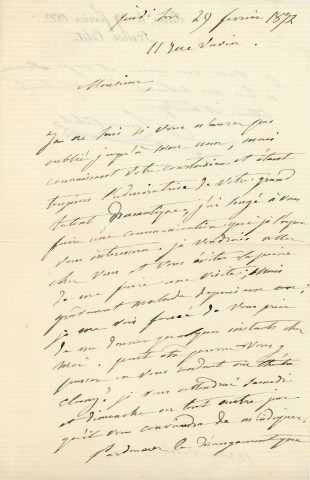 Jeudi 29 février 1872
11 rue Vavin.
Monsieur,
Je ne sais si vous n'aurez pas
oublié jusqu'à mon nom, mais
connaissant votre courtoisie et étant
toujours l'admiratrice de votre grand
talent dramatique, j'ai songé à vous
faire une communication qui je l'espère
vous intéressera. je voudrais aller
chez vous et vous éviter la peine
de me faire une visite; mais
gravement malade depuis un mois,
je me vois forcée de vous prier
de me donner quelques instants chez
moi. peut-être pourrez-vous
passer en vous rendant au théâtre
Cluny? je vous attendrai samedi
et dimanche ou tout autre jour
qu'il vous conviendra de m'indiquer.
Pardonnez le dérangement que